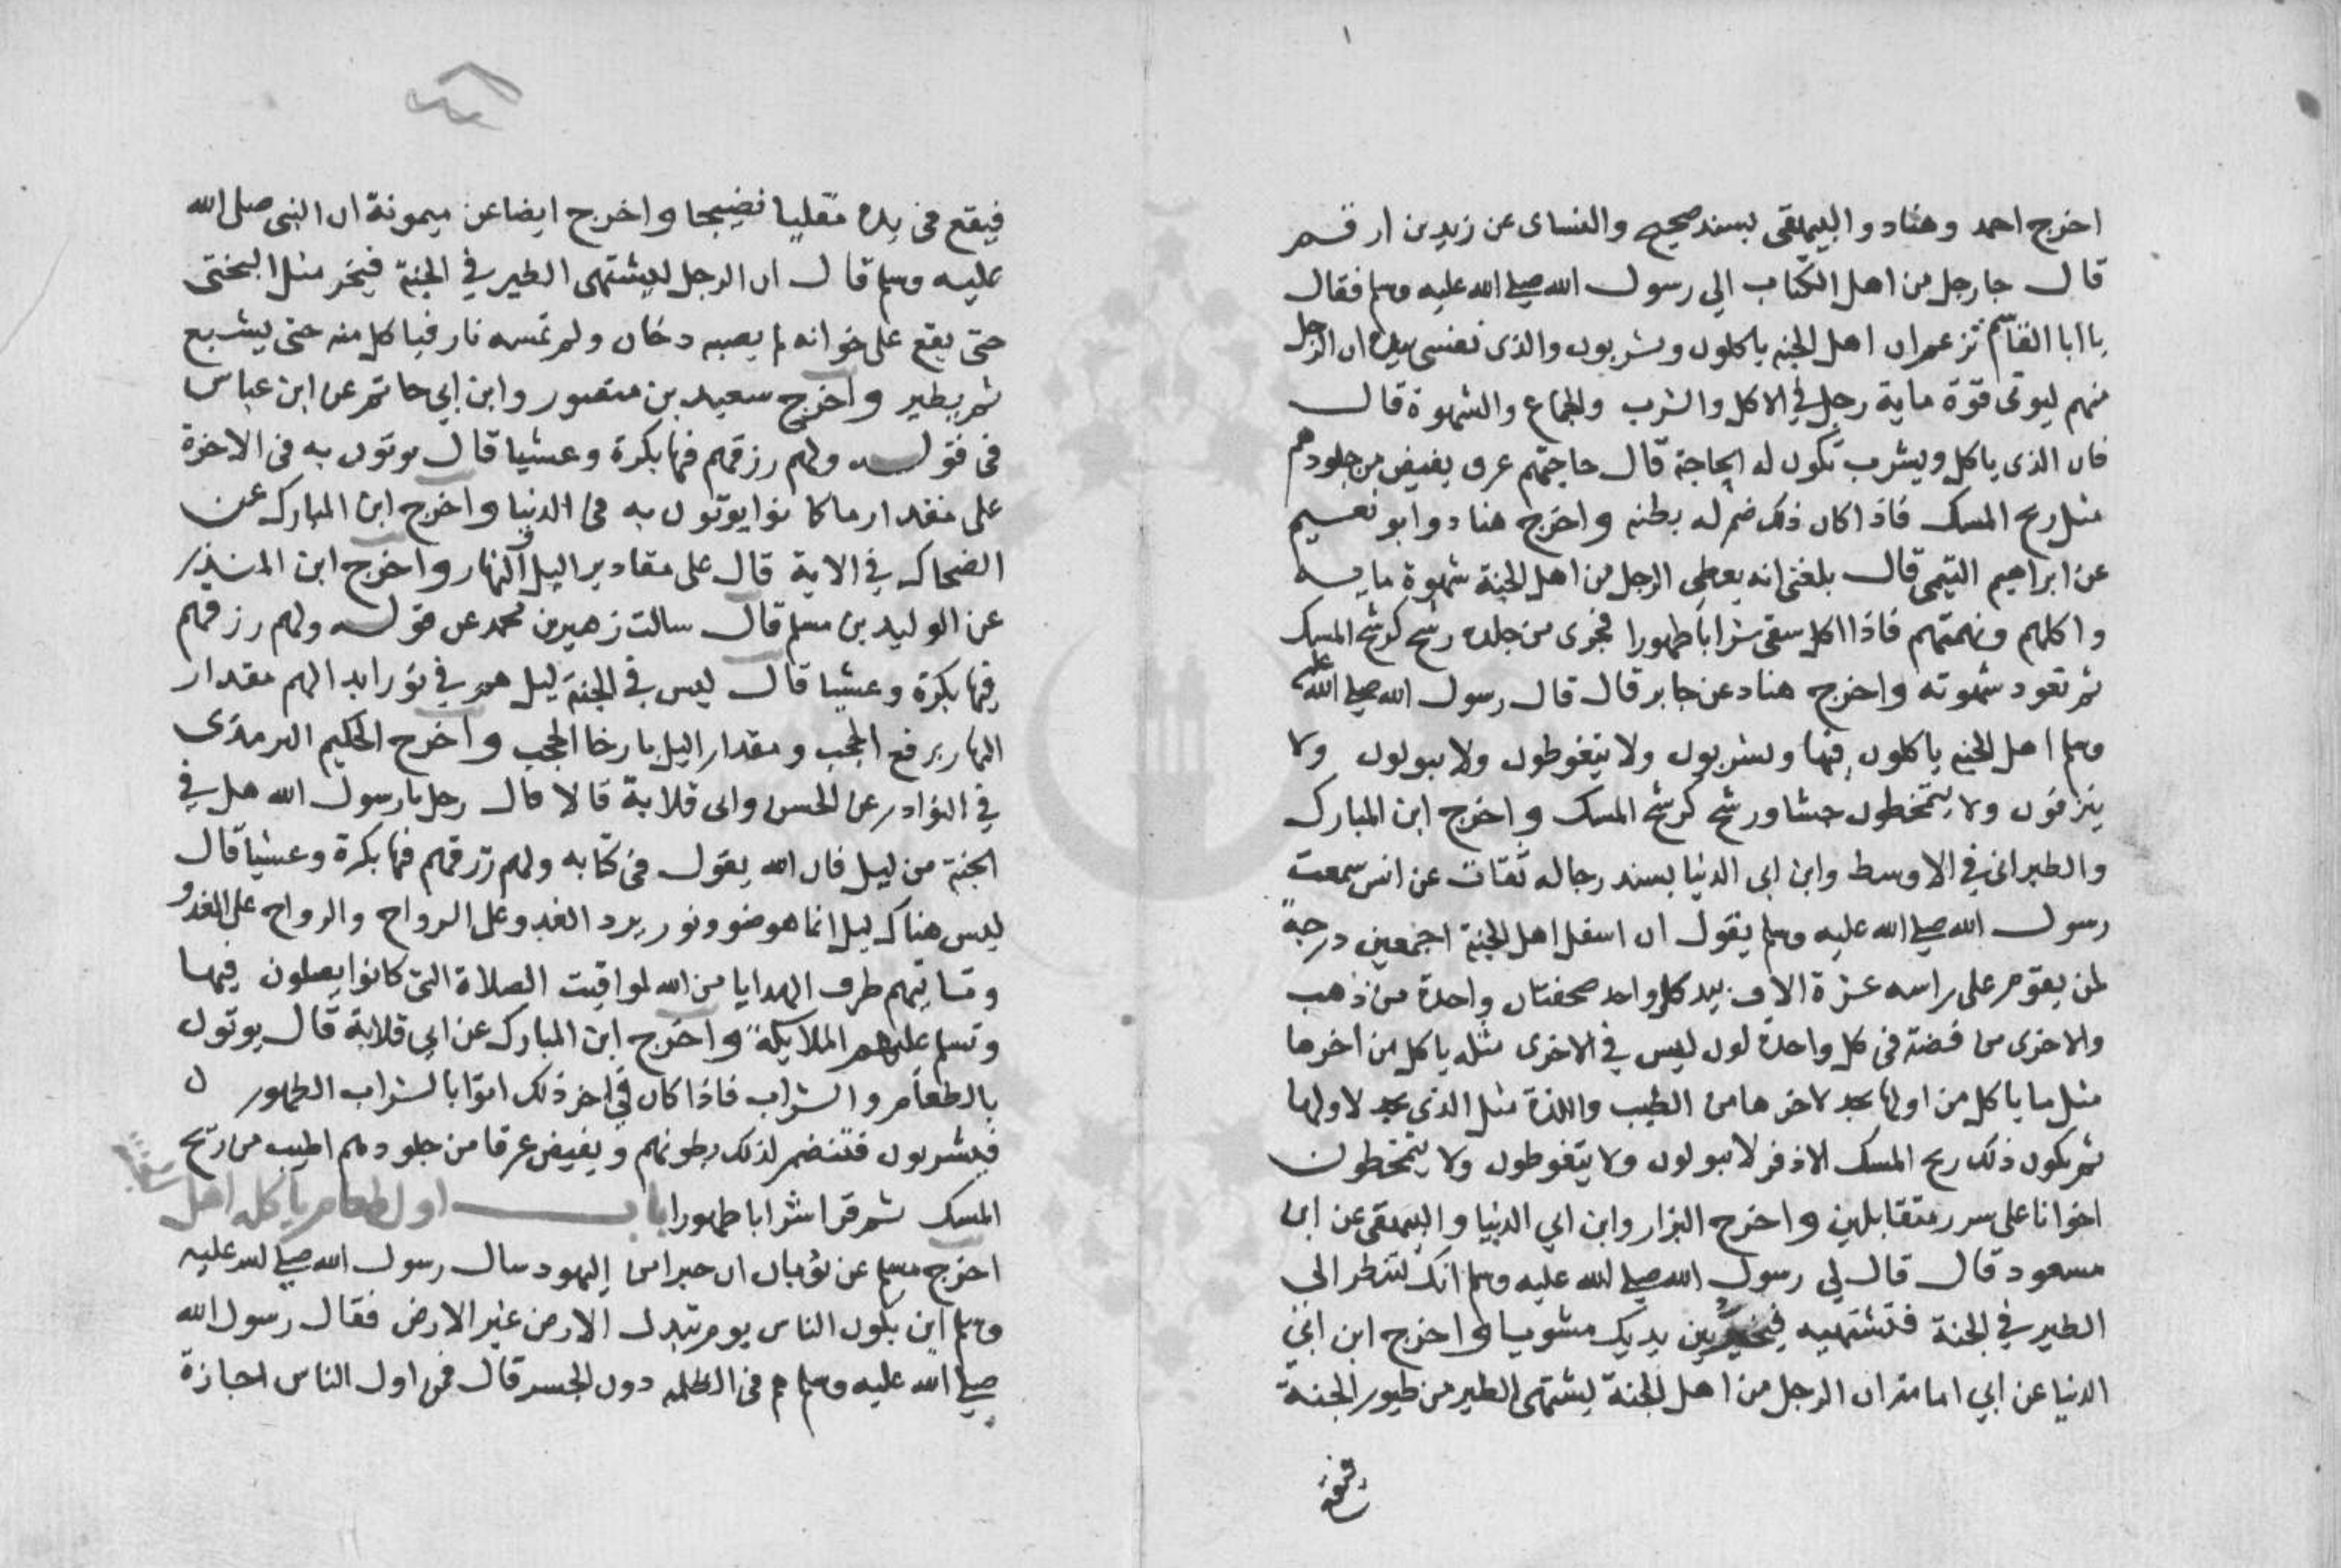 اخرج احمد وهناد والبيهقي بسند صحيح والنساى عن زيد بن ارقم
قال جا رجل من اهل الكتاب الي رسول الله صلي الله عليه وسلم فقال
يا ابا القاسم تزعم ان اهل الجنه ياكلون ويشربون والذى نفسى بيده ان الرجل
منهم ليوتى قوة ماية رجل في الاكل والشرب والجماع والشهوة قال
فان الذى ياكل ويشرب تكون له الحاجة قال حاجتهم عرق يفيض من جلودهم
مثل ريح المسك فاذا كان ذلك ضمر له بطنه واخرج هناد وابو نعيم
عن ابراهيم التيمى قال بلغنى انه يعطى الرجل من اهل الجنة شهوة ماية
واكلهم ونهمتهم فاذا اكل سقى شرابا طهورا فجرى من جلده رشح كرشح المسك
ثم تعود شهوته واخرج هناد عن جابر قال قال رسول الله صلي الله عليه
وسلم اهل الجنه ياكلون فيها ويشربون ولا يتغوطون ولا يبولون ولا
ينزفون ولا يتمخطون جشا ورشح كرشح المسك واخرج ابن المبارك
والطبرانى في الاوسط وابن ابى الدنيا بسند رجاله ثقات عن انس سمعت
رسول الله صلي الله عليه وسلم يقول ان اسفل اهل الجنة اجمعين درجة
لمن يقوم على راسه عشرة الاف بيد كل واحد صحفتان واحدة من ذهب
والاخرى من فضة فى كل واحدة لون ليس في الاخرى مثله ياكل من اخرها
مثل ما ياكل من اولها يجد لاخرها من الطيب واللذة مثل الذى يجد لاولها
ثم يكون ذلك ريح المسك الاذفر لا يبولون ولا يتغوطون ولا يتمخطون
اخوانا على سرر متقابلين واخرج البزار وابن ابي الدنيا والبيهقى عن ابن
مسعود قال قال لي رسول الله صلي الله عليه وسلم انك لتنظر الى
الطير في الجنة فتشتهيه فيخر بين يديك مشويا واخرج ابن ابي
الدنيا عن ابي امامة ان الرجل من اهل الجنة يشتهى الطير من طيور الجنة
فيقع
فيقع فى يده مقليا نضيجا واخرج ايضا عن ميمونة ان النبى صلى الله
عليه وسلم قال ان الرجل ليشتهى الطير في الجنة فيخر مثل البختى
حتى يقع على خوانه لم يصبه دخان ولم تمسه نار فياكل منه حتى يشبع
ثم يطير واخرج سعيد بن منصور وابن ابي حاتم عن ابن عباس
فى قوله ولهم رزقهم فيها بكرة وعشيا قال يوتون به فى الاخرة
على مقدار ما كانوا يوتون به فى الدنيا واخرج ابن المبارك عن
الضحاك في الاية قال على مقادير اليل والنهار واخرج ابن المنذر
عن الوليد بن مسلم قال سالت زهير بن محمد عن قوله ولهم رزقهم
فيها بكرة وعشيا قال ليس في الجنة ليل هم في نور ابدا لهم مقدار
النهار برفع الحجب ومقدار اليل بارخا الحجب واخرج الحكيم الترمذى
في النوادر عن الحسن وابى قلابة قالا قال رجل يا رسول الله هل في
الجنة من ليل فان الله يقول فى كتابه ولهم رزقهم فيها بكرة وعشيا قال
ليس هناك ليل انما هو ضو ونور يرد الغدو على الرواح والرواح على الغدو
وتاتيهم طرف الهدايا من الله لمواقيت الصلاة التى كانوا يصلون فيها
وتسلم عليهم الملايكة واخرج ابن المبارك عن ابي قلابة قال يوتون
بالطعام والشراب فاذا كان في اخر ذلك اتوا بالشراب الطهور ن
فيشربون فتضمر لذلك بطونهم ويفيض عرقا من جلودهم اطيب من ريح
المسك ثم قرا شرابا طهورا باب اول طعام ياكله اهل
احرج مسلم عن ثوبان ان حبرا من اليهود سال رسول الله صلي الله عليه
وسلم اين يكون الناس يوم تبدل الارض غير الارض فقال رسول الله
صلي الله عليه وسلم هم فى الظلمه دون الجسر قال فمن اول الناس اجازة